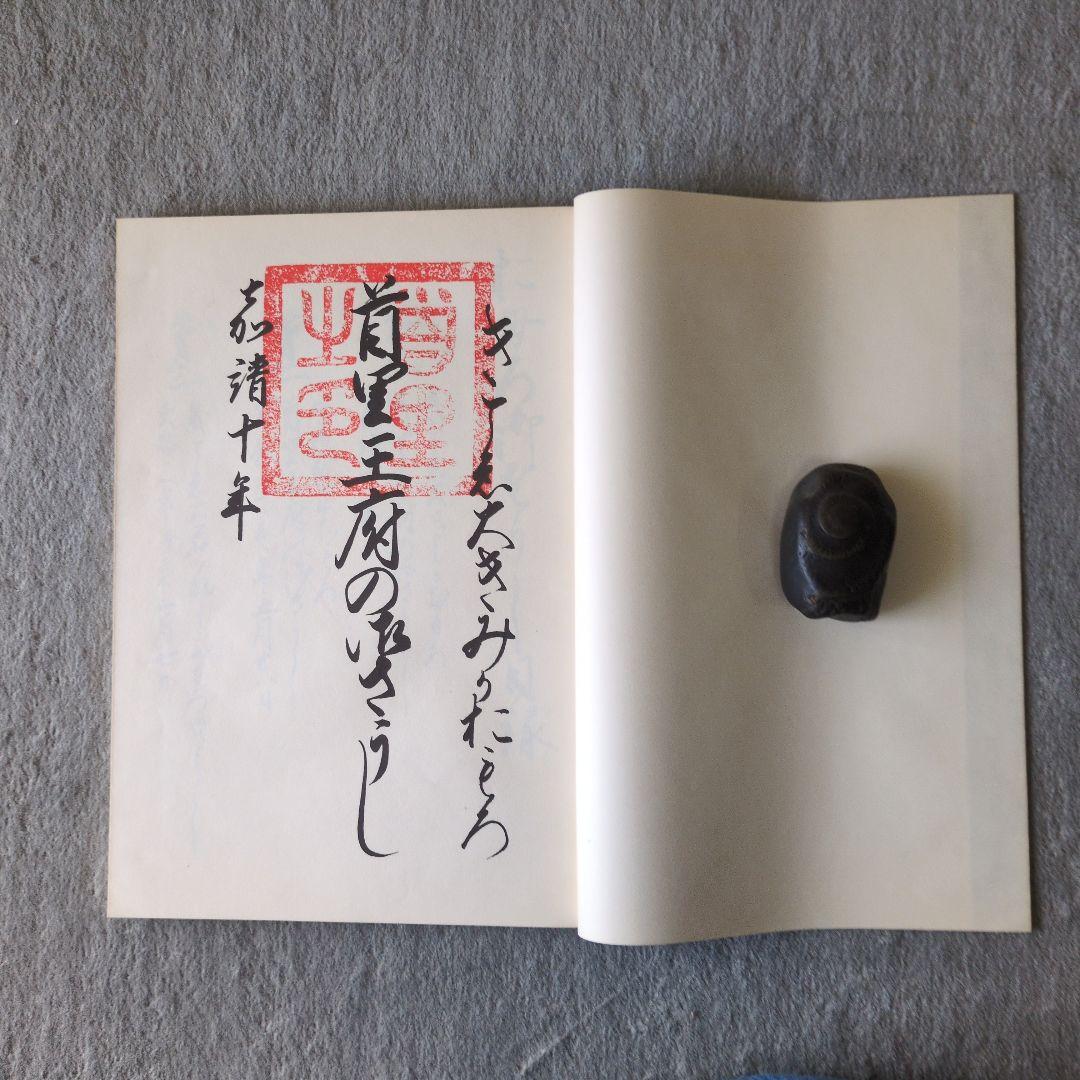 きこゑ大きみかおもろ
首里王府の御さうし
嘉靖十年
首里之印